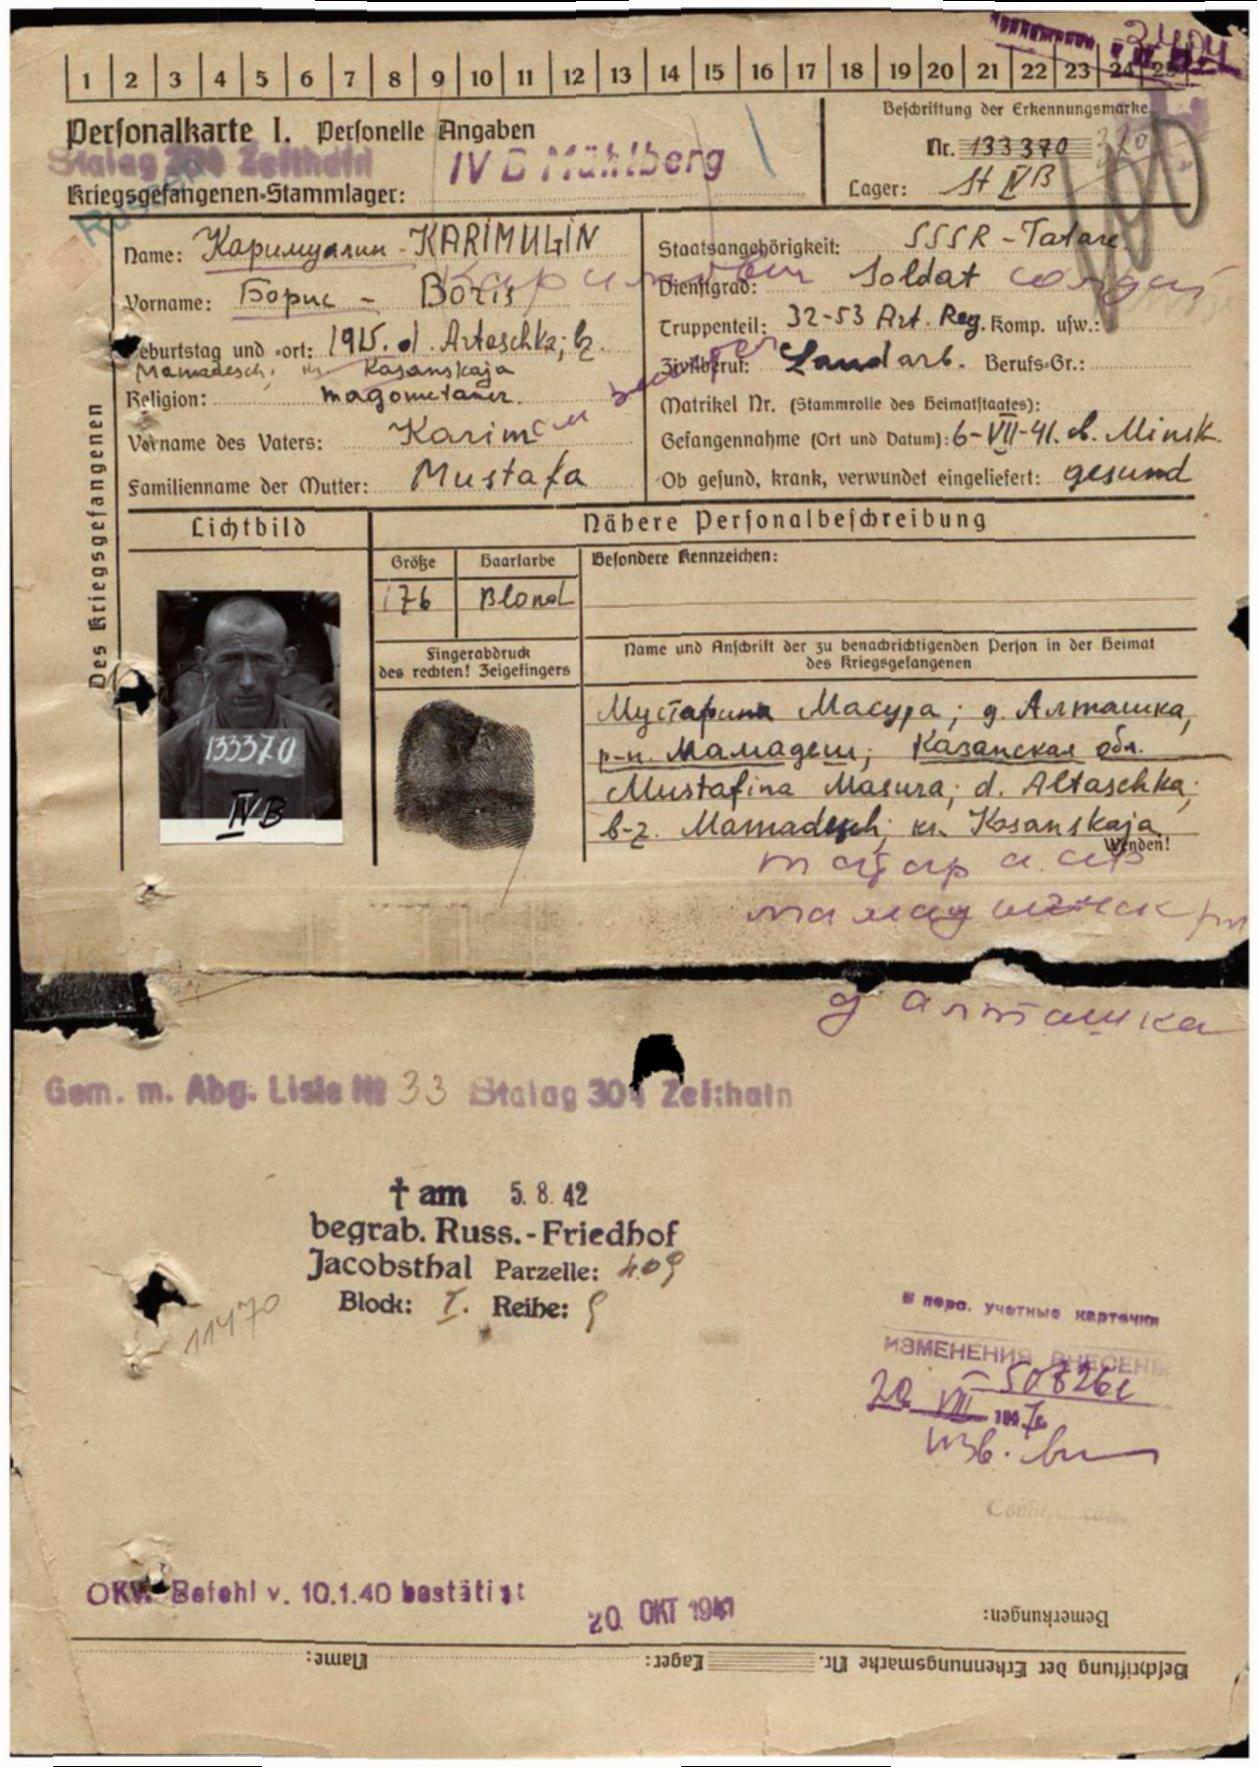 1 2 3 4 5 6 7 8 9 10 11 12 13 14 15 16 17 18 19 20 21 22 23 24 25
Personalkarte I. Personelle Angaben
Beschriftung der Erkennungsmarke
Stalag 304 Zeithain
IV B Mühlberg
Nr. 133370
Kriegsgefangenen-Stammlager:
Lager: St IVB
Des Kriegsgefangenen
Name: Каримуллин - KARIMULIN
Vorname: Борис - Boris
Geburtstag und -ort: 1915. d. Artaschka; bz.
Mamadesch; kr. Kasanskaja
Religion: magometaner.
Vorname des Vaters: Karim
Familienname der Mutter: Mustafa
Staatsangehörigkeit: SSSR - Tatare
Dienstgrad: Soldat солдат
Truppenteil: 32-53 Art. Reg. Komp. usw.:
Zivilberuf: Landarb. Berufs-Gr.:
Matrikel Nr. (Stammrolle des Heimatstaates):
Gefangennahme (Ort und Datum): 6-VII-41. b. Minsk.
Ob gesund, krank, verwundet eingeliefert: gesund
Lichtbild
Nähere Personalbeschreibung
Größe
Haarfarbe
Besondere Kennzeichen:
176
Blond
Fingerabdruck
des rechten! Zeigefingers
Name und Anschrift der zu benachrichtigenden Person in der Heimat
des Kriegsgefangenen
133370
IVB
Мустафина Масура; д. Алташка,
р-н. Мамадеш; Казанская обл.
Mustafina Masura; d. Altaschka;
b-z. Mamadesch; kr. Kasanskaja
Wenden!
татар а.сср
д Алташка
Gem. m. Abg. Liste № 33 Stalag 304 Zeithain
† am 5. 8. 42
begrab. Russ.-Friedhof
Jacobsthal Parzelle: 409
Block: I. Reihe: 9
11470
в перс. учетные карточки
ИЗМЕНЕНИЯ ВНЕСЕНЫ
20 VII
OKW Befehl v. 10.1.40 bestätigt
20. OKT 1941
Bemerkungen:
Beschriftung der Erkennungsmarke Nr. Lager: Name: